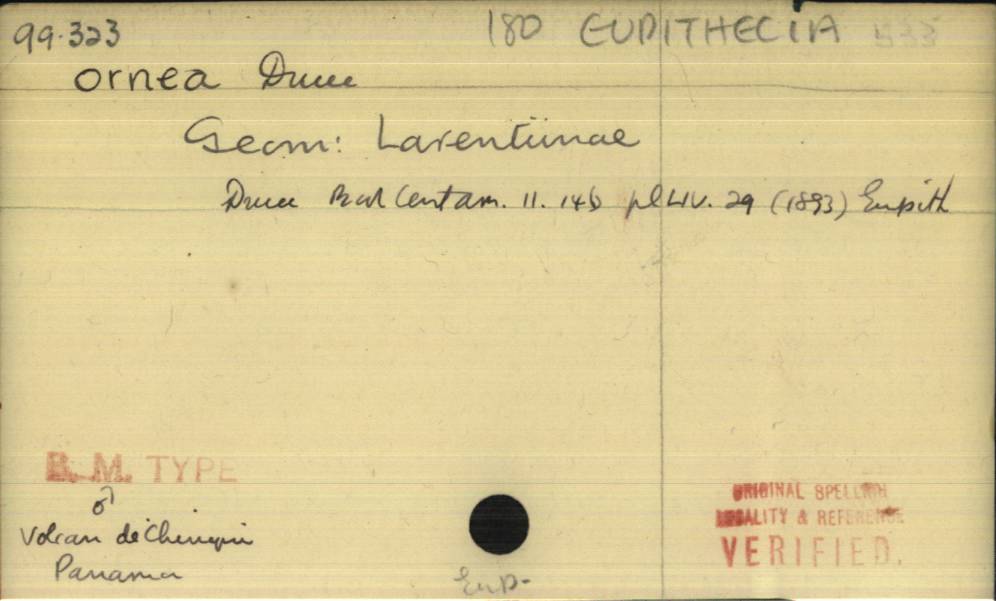 99.323 180 EUPITHECIA 533
ornea Druce
Geom: Larentiinae
Druce Biol Cent am. 11. 146 pl LIV. 29 (1893) Eupith
B. M. TYPE
♂
Volcan de Chiriqui
Panama
Eup-
ORIGINAL SPELLING
LOCALITY & REFERENCE
VERIFIED.